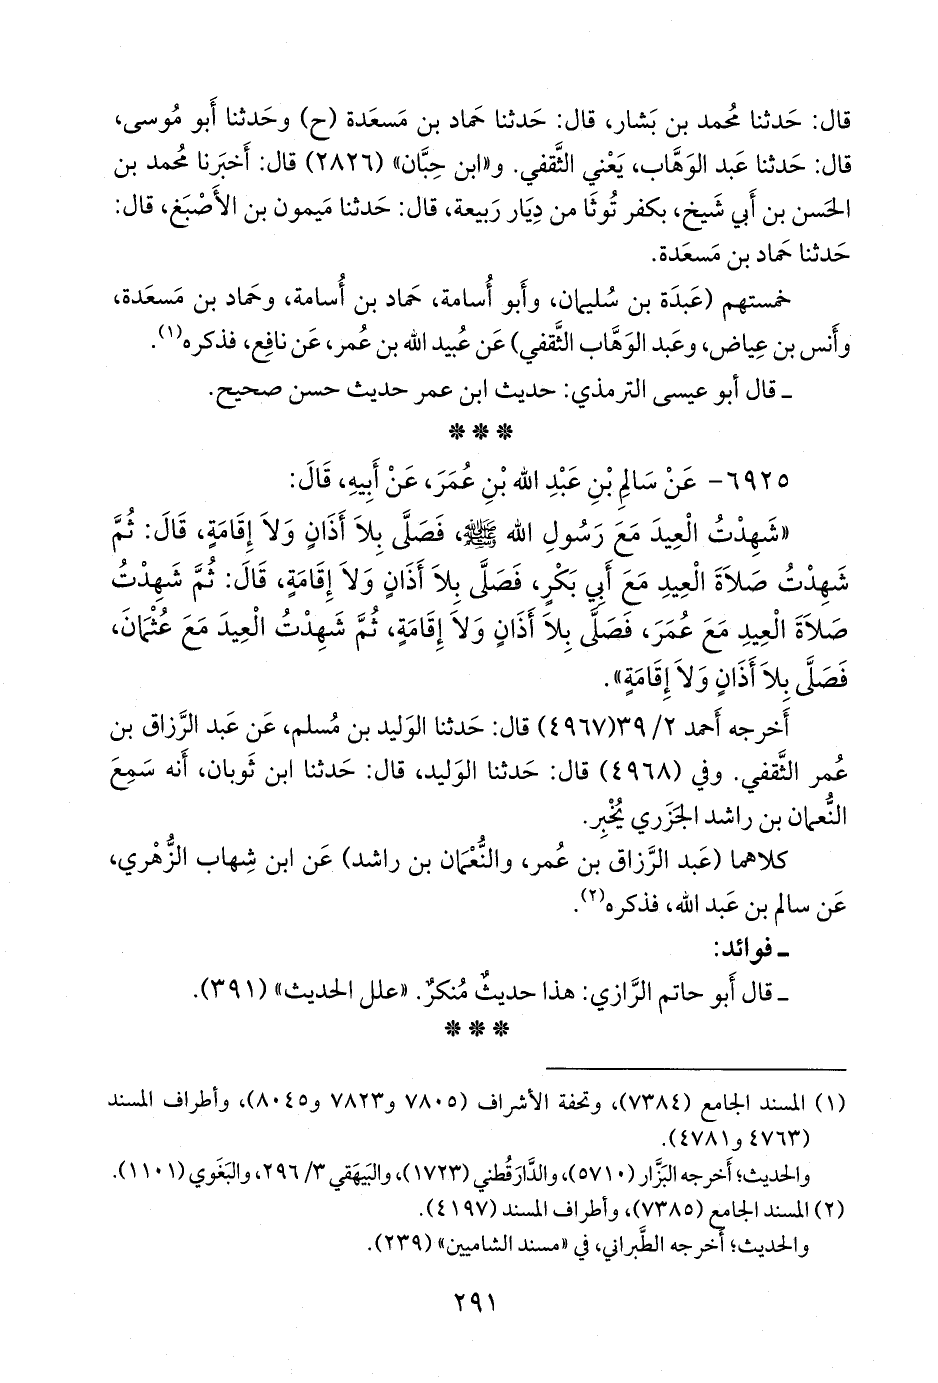 قال: حَدثنا مُحمد بن بَشار، قال: حَدثنا حَماد بن مَسعَدة (ح) وحَدثنا أَبو مُوسى،
قال: حَدثنا عَبد الوَهَّاب، يَعْني الثَّقفي. و«ابن حِبَّان» (٢٨٢٦) قال: أَخبَرنا مُحمد بن
الحَسن بن أَبي شَيخ، بكفر تُوثَا من دِيَار رَبيعة، قال: حَدثنا مَيمون بن الأَصْبَغ، قال:
حَدثنا حَماد بن مَسعَدة.
خمستهم (عَبدَة بن سُليمان، وأَبو أُسامة، حَماد بن أُسامة، وحَماد بن مَسعَدة،
وأَنس بن عِياض، وعَبد الوَهَّاب الثَّقفي) عَن عُبيد الله بن عُمر، عَن نافِع، فذكره(١).
ـ قال أَبو عيسى الترمذي: حديث ابن عمر حديث حسن صحيح.
* * *
٦٩٢٥- عَنْ سَالِمِ بْنِ عَبْدِ اللهِ بْنِ عُمَرَ، عَنْ أَبِيهِ، قَالَ:
«شَهِدْتُ الْعِيدَ مَعَ رَسُولِ اللهِ ﷺ، فَصَلَّى بِلاَ أَذَانٍ وَلاَ إِقَامَةٍ، قَالَ: ثُمَّ
شَهِدْتُ صَلاَةَ الْعِيدِ مَعَ أَبِي بَكْرٍ، فَصَلَّى بِلاَ أَذَانٍ وَلاَ إِقَامَةٍ، قَالَ: ثُمَّ شَهِدْتُ
صَلاَةَ الْعِيدِ مَعَ عُمَرَ، فَصَلَّى بِلاَ أَذَانٍ وَلاَ إِقَامَةٍ، ثُمَّ شَهِدْتُ الْعِيدَ مَعَ عُثْمَانَ،
فَصَلَّى بِلاَ أَذَانٍ وَلاَ إِقَامَةٍ».
أَخرجه أَحمد ٢/ ٣٩(٤٩٦٧) قال: حَدثنا الوَليد بن مُسلم، عَن عَبد الرَّزاق بن
عُمر الثَّقفي. وفي (٤٩٦٨) قال: حَدثنا الوَليد، قال: حَدثنا ابن ثَوبان، أَنه سَمِعَ
النُّعمان بن راشد الجَزَري يُخْبِر.
كلاهما (عَبد الرَّزاق بن عُمر، والنُّعْمَان بن راشد) عَن ابن شِهاب الزُّهْري،
عَن سالم بن عَبد الله، فذكره(٢).
ـ فوائد:
ـ قال أَبو حاتم الرَّازي: هذا حديثٌ مُنكرٌ. «علل الحديث» (٣٩١).
* * *
(١) المسند الجامع (٧٣٨٤)، وتحفة الأشراف (٧٨٠٥ و٧٨٢٣ و٨٠٤٥)، وأطراف المسند
(٤٧٦٣ و٤٧٨١).
والحديث؛ أَخرجه البَزَّار (٥٧١٠)، والدَّارَقُطني (١٧٢٣)، والبَيهَقي ٣/ ٢٩٦، والبَغَوي (١١٠١).
(٢) المسند الجامع (٧٣٨٥)، وأطراف المسند (٤١٩٧).
والحديث؛ أَخرجه الطَّبراني، في «مسند الشاميين» (٢٣٩).
٢٩١